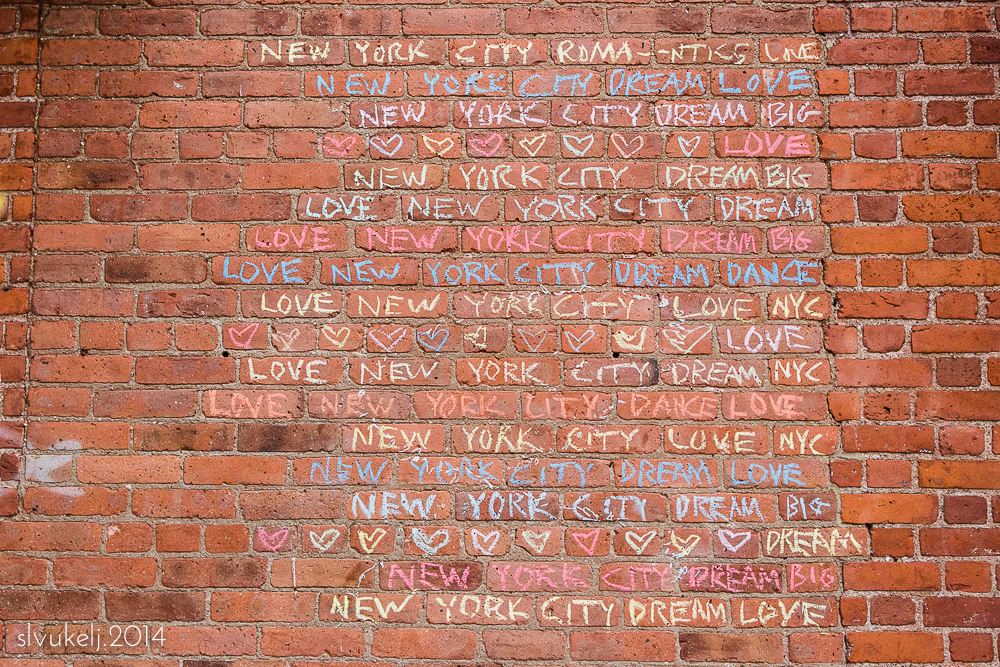 NEW YORK CITY ROMA--NTICS LOVE
NEW YORK CITY DREAM LOVE
NEW YORK CITY DREAM BIG
♡ ♡ ♡ ♡ ♡ ♡ ♡ ♡ LOVE
NEW YORK CITY DREAM BIG
LOVE NEW YORK CITY DREAM
LOVE NEW YORK CITY DREAM BIG
LOVE NEW YORK CITY DREAM DANCE
LOVE NEW YORK CITY LOVE NYC
♡ ♡ ♡ ♡ ♡ ♡ ♡ ♡ ♡ ♡ LOVE
LOVE NEW YORK CITY DREAM NYC
LOVE NEW YORK CITY DANCE LOVE
NEW YORK CITY LOVE NYC
NEW YORK CITY DREAM LOVE
NEW YORK CITY DREAM BIG
♡ ♡ ♡ ♡ ♡ ♡ ♡ ♡ ♡ ♡ DREAM
NEW YORK CITY DREAM BIG
NEW YORK CITY DREAM LOVE
slvukelj.2014